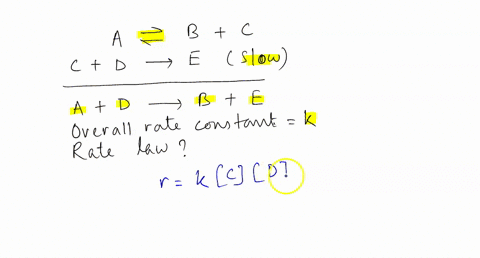 A ⇌ B + C
C + D → E (slow)
A + D → B + E
Overall rate constant = k
Rate law?
r = k [C] [D]